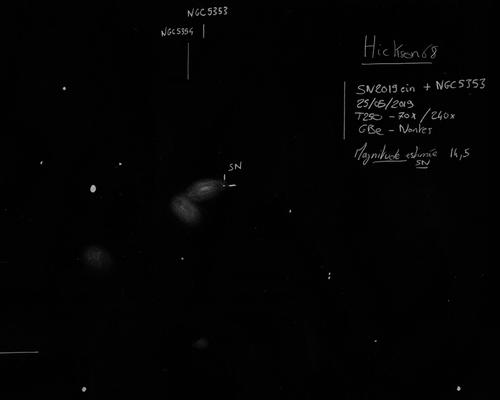 NGC5353
NGC5354
Hickson 68
SN2019ein + NGC5353
25/05/2019
T250 - 70x / 240x
GBe - Nantes
Magnitude estimée 14,5
SN
SN